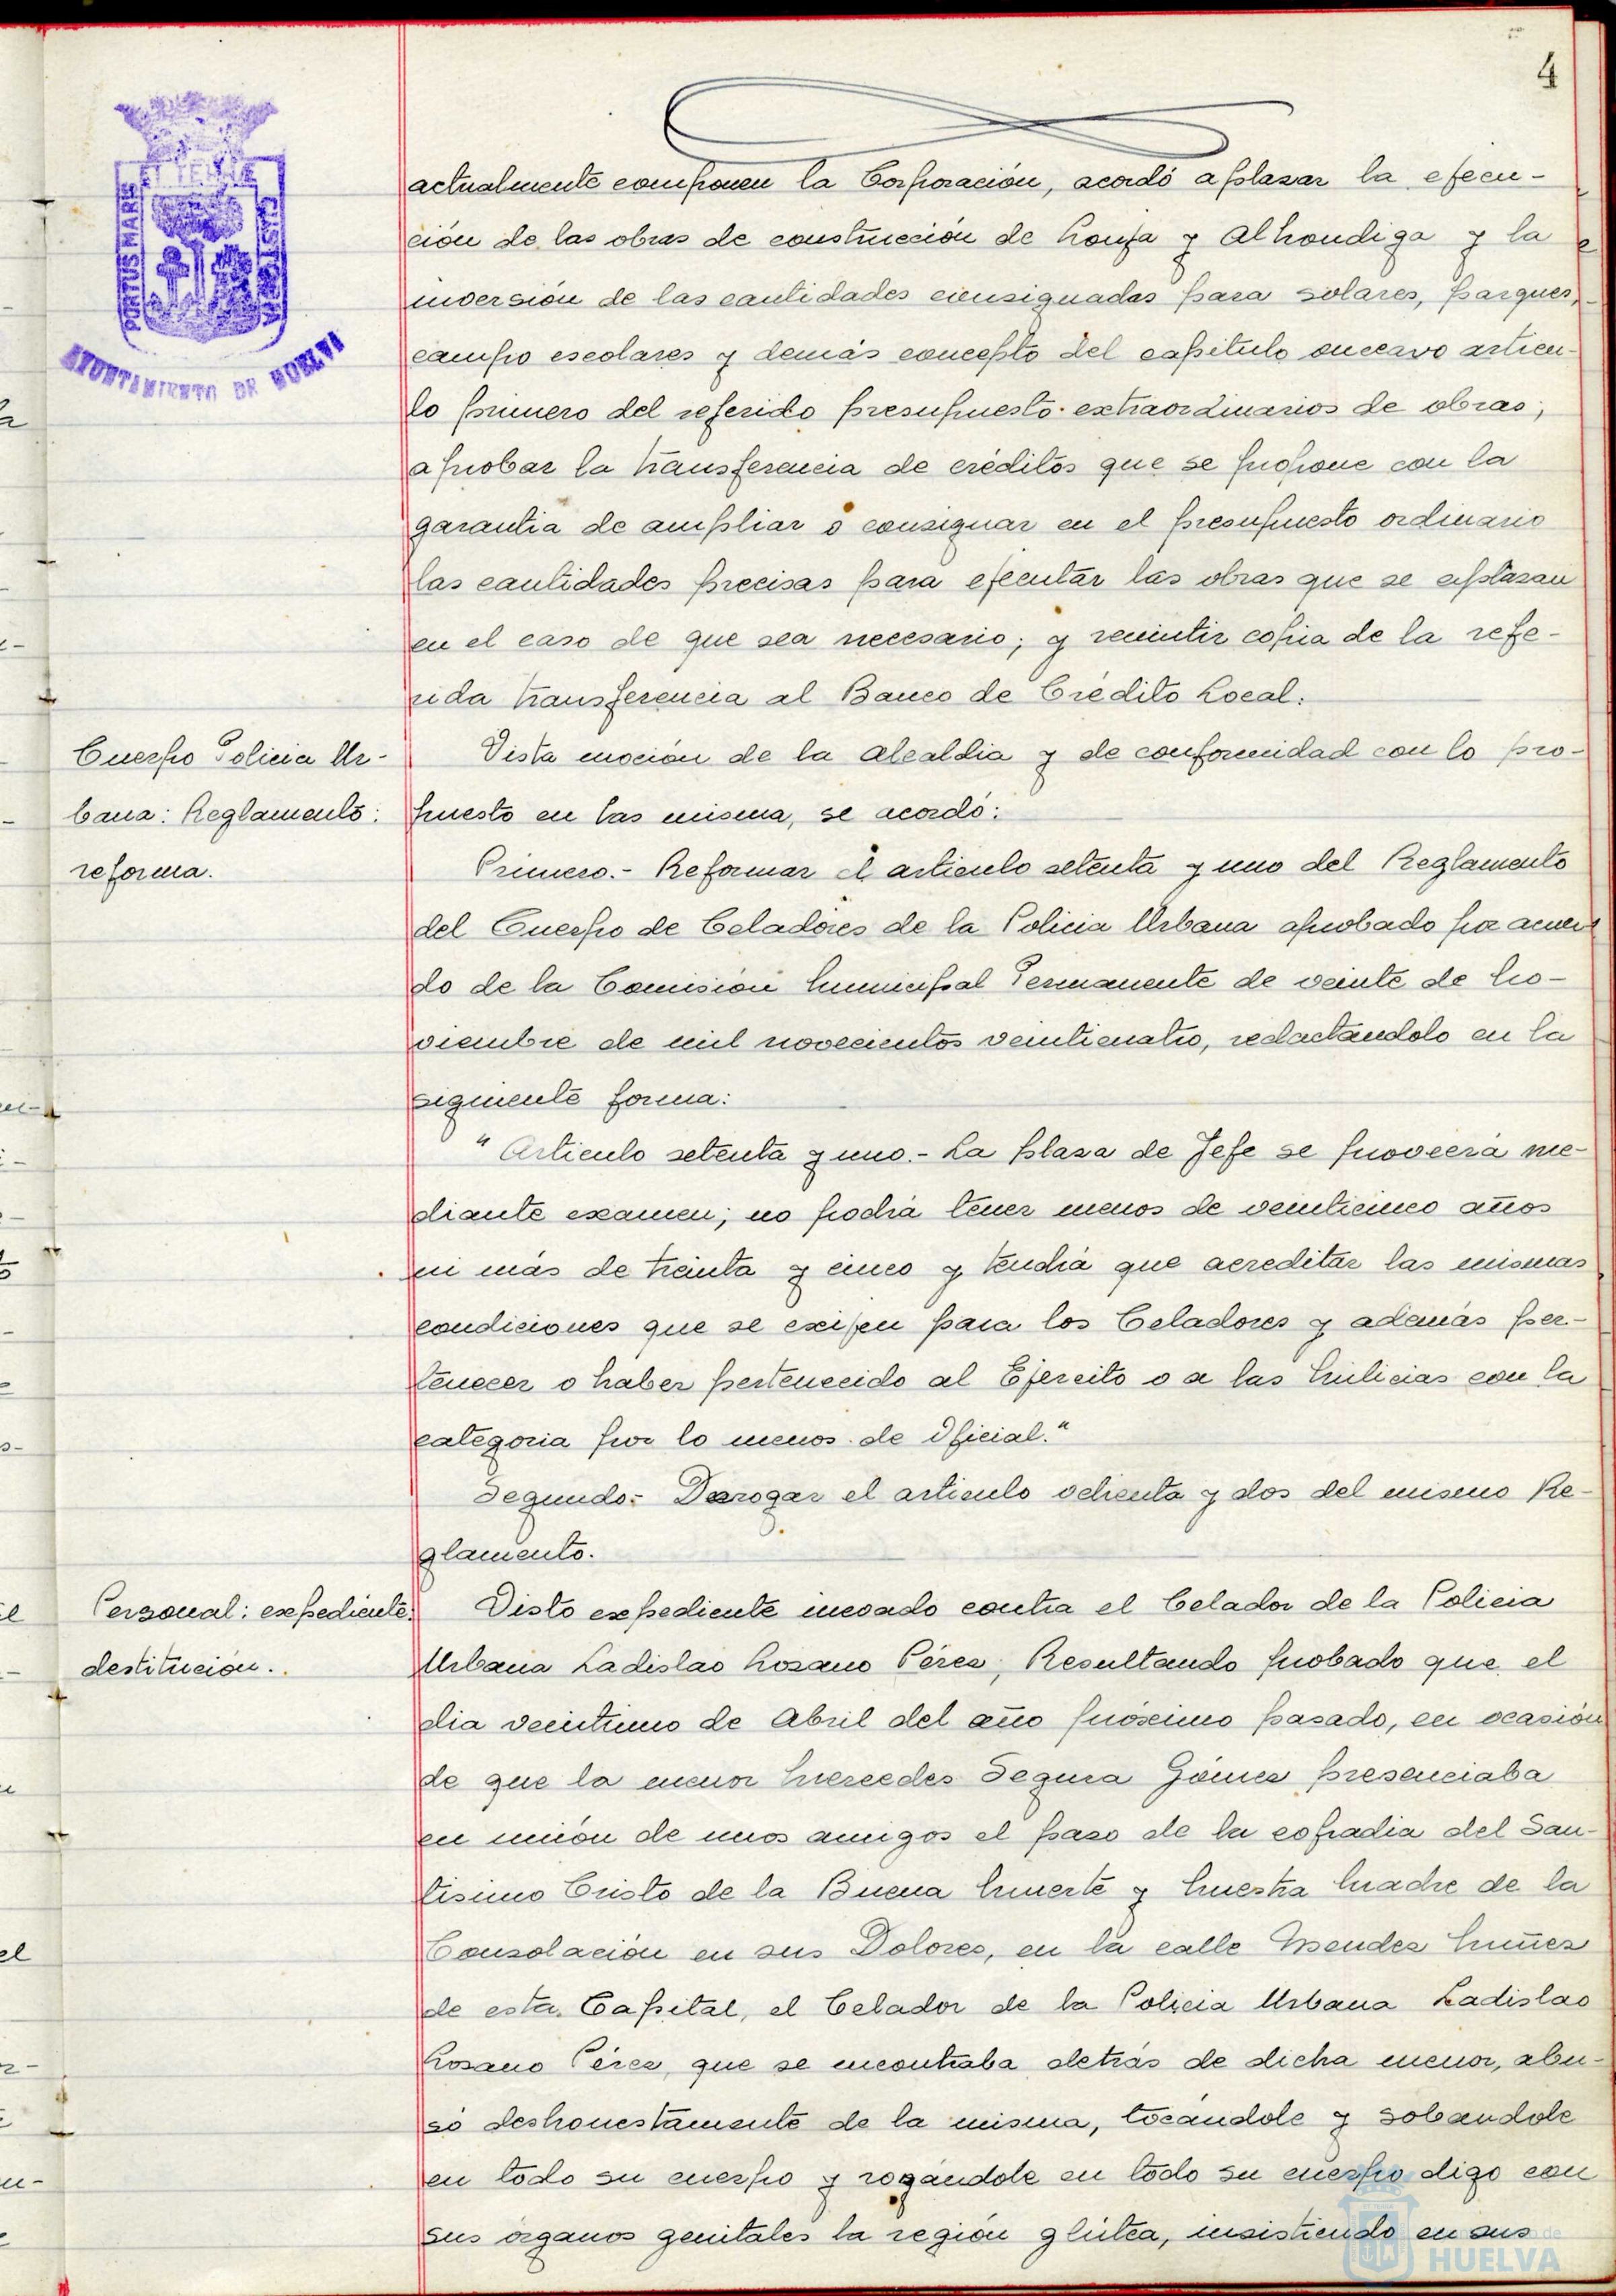 4
PORTUS MARIS
ET TERRÆ
CUSTODIA
AYUNTAMIENTO DE HUELVA
actualmente componen la Corporación, acordó aplazar la ejecu-
ción de las obras de construcción de Lonja y Alhondiga y la
inversión de las cantidades consignadas para solares, parques,
campo escolares y demás concepto del capitulo onceavo articu-
lo primero del referido presupuesto extraordinarios de obras;
aprobar la transferencia de créditos que se propone con la
garantia de ampliar o consignar en el presupuesto ordinario
las cantidades precisas para ejecutar las obras que se aplazan
en el caso de que sea necesario; y remitir copia de la refe-
rida transferencia al Banco de Crédito Local.
Cuerpo Policia Ur-
bana: Reglamento:
reforma.
Vista moción de la Alcaldia y de conformidad con lo pro-
puesto en las misma, se acordó:
Primero.- Reformar el articulo setenta y uno del Reglamento
del Cuerpo de Celadores de la Policia Urbana aprobado por acuer
do de la Comisión Municipal Permanente de veinte de No-
viembre de mil novecientos veinticuatro, redactandolo en la
siguiente forma:
"Articulo setenta y uno.- La plaza de Jefe se proveerá me-
diante examen; no podrá tener menos de veinticinco años
ni más de treinta y cinco y tendrá que acreditar las mismas
condiciones que se exijen para los Celadores y además per-
tenecer o haber pertenecido al Ejercito o a las Milicias con la
categoria por lo menos de Oficial."
Segundo.- Derogar el articulo ochenta y dos del mismo Re-
glamento.
Personal: expediente:
destitución.
Visto expediente incoado contra el Celador de la Policia
Urbana Ladislao Lozano Pérez; Resultando probado que el
dia veintiuno de Abril del año próximo pasado, en ocasión
de que la menor Mercedes Segura Gómez presenciaba
en unión de unos amigos el paso de la cofradia del San-
tisimo Cristo de la Buena Muerte y Nuestra Madre de la
Consolación en sus Dolores, en la calle Mendez Nuñez
de esta Capital, el Celador de la Policia Urbana Ladislao
Lozano Pérez, que se encontraba detrás de dicha menor, abu-
só deshonestamente de la misma, tocándole y sobandole
en todo su cuerpo y rozándole en todo su cuerpo digo con
sus órganos genitales la región glútea, insistiendo en sus
HUELVA